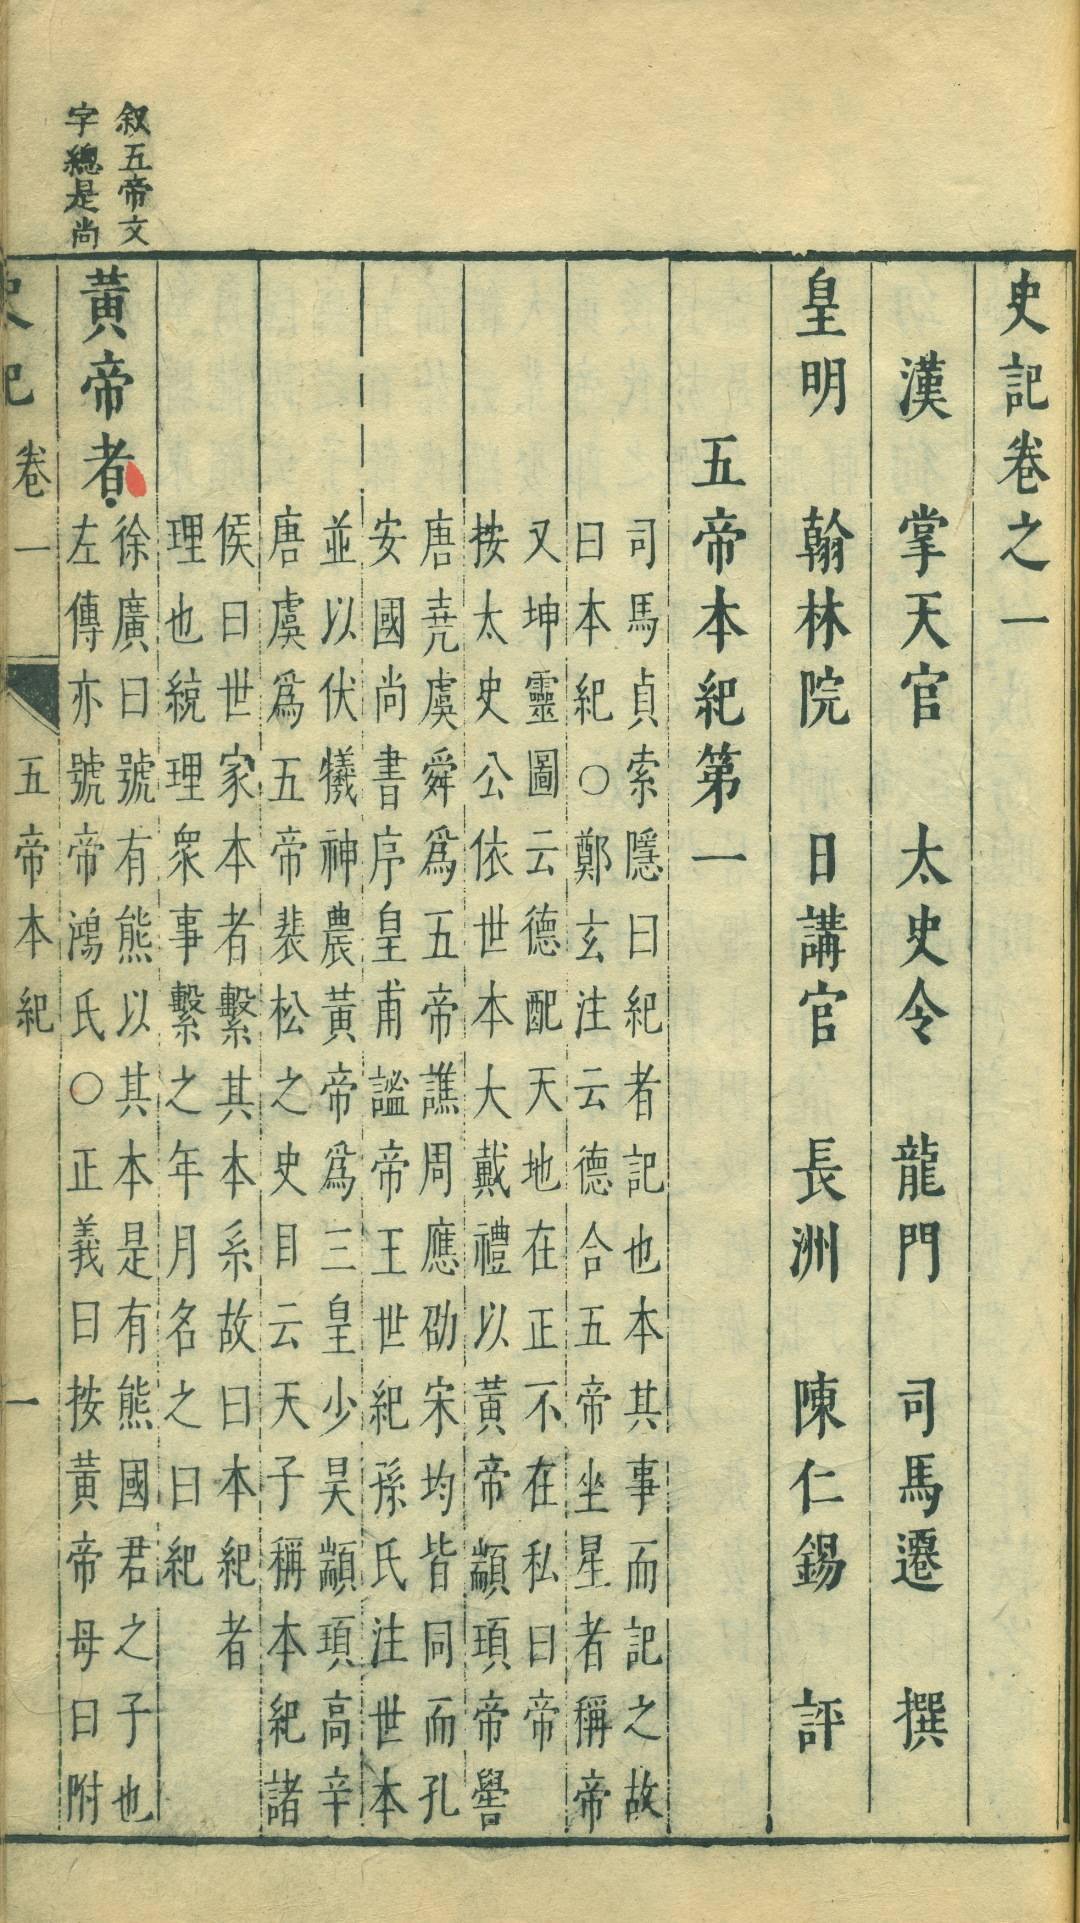 史記卷之一
漢 掌天官 太史令 龍門 司馬遷 撰
皇明 翰林院 日講官 長洲 陳仁錫 評
五帝本紀第一
司馬貞索隱曰紀者記也本其事而記之故
曰本紀○鄭玄注云德合五帝坐星者稱帝
又坤靈圖云德配天地在正不在私曰帝
按太史公依世本大戴禮以黃帝顓頊帝嚳
唐尭虞舜爲五帝譙周應劭宋均皆同而孔
安國尚書序皇甫謐帝王世紀孫氏注世本
並以伏犧神農黃帝爲三皇少昊顓頊高辛
唐虞爲五帝裴松之史目云天子稱本紀諸
侯曰世家本者繫其本系故曰本紀者
理也統理衆事繫之年月名之曰紀
叙五帝文
字總是尚
黃帝者
徐廣曰號有熊以其本是有熊國君之子也
左傳亦號帝鴻氏○正義曰按黃帝母曰附
史記 卷一 五帝本紀 一